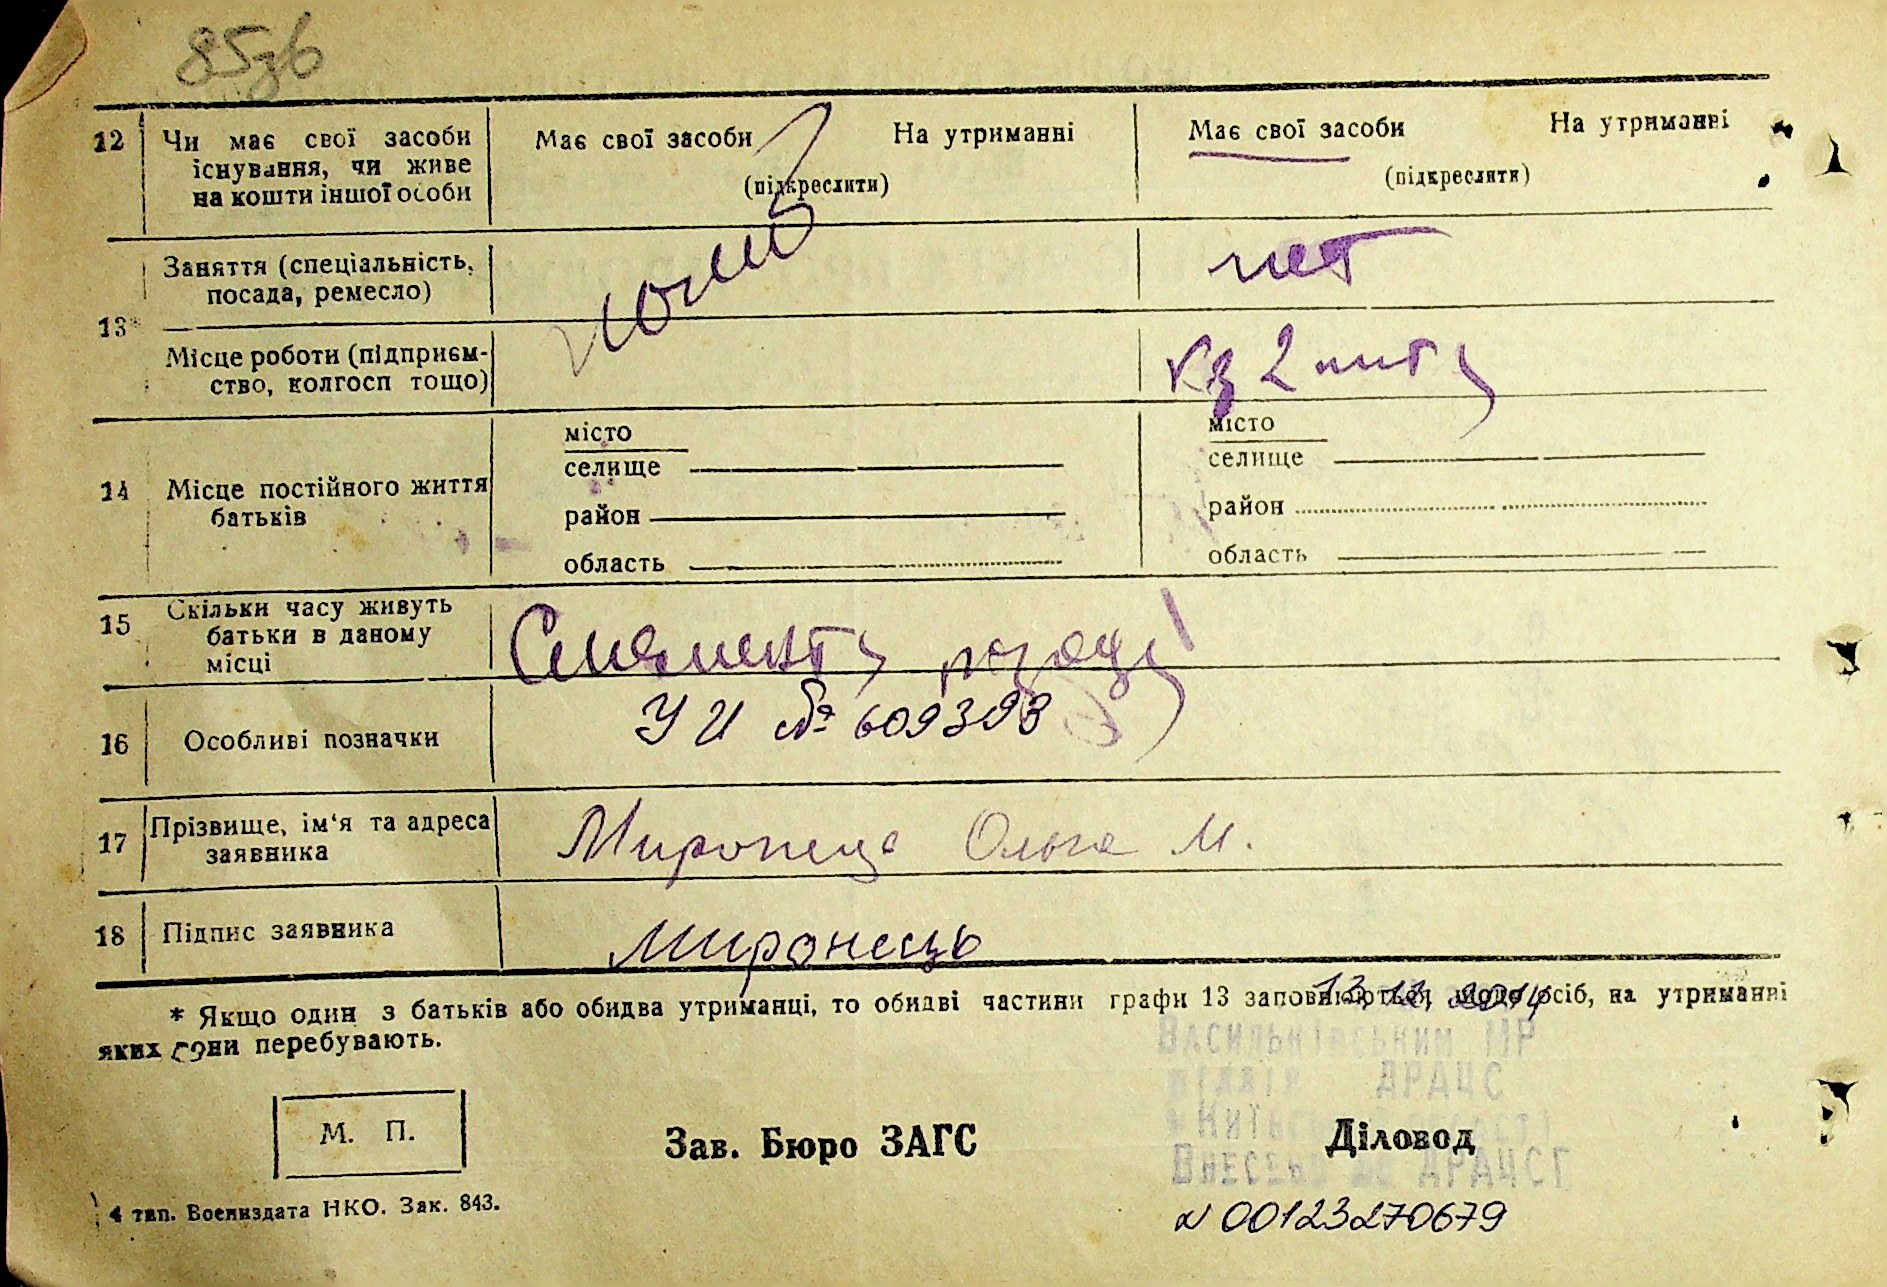 85зв
12 Чи має свої засоби існування, чи живе на кошти іншої особи
Має свої засоби На утриманні
(підкреслити)
Має свої засоби На утриманні
(підкреслити)
13* Заняття (спеціальність, посада, ремесло)
Місце роботи (підприєм-
ство, колгосп тощо)
14 Місце постійного життя батьків
місто
селище
район
область
місто
селище
район
область
15 Скільки часу живуть батьки в даному місці
16 Особливі позначки
УИ № 609393
17 Прізвище, ім'я та адреса заявника
Миронець Ольга М.
18 Підпис заявника
Миронець
* Якщо один з батьків або обидва утриманці, то обидві частини графи 13 заповнюються щодо осіб, на утриманні
яких вони перебувають.
Васильківським МР
ДРАЦС
М. П.
Зав. Бюро ЗАГС
Діловод
Внесено до ДРАЦСГ
4 тип. Воениздата НКО. Зак. 843.
N 00123270679